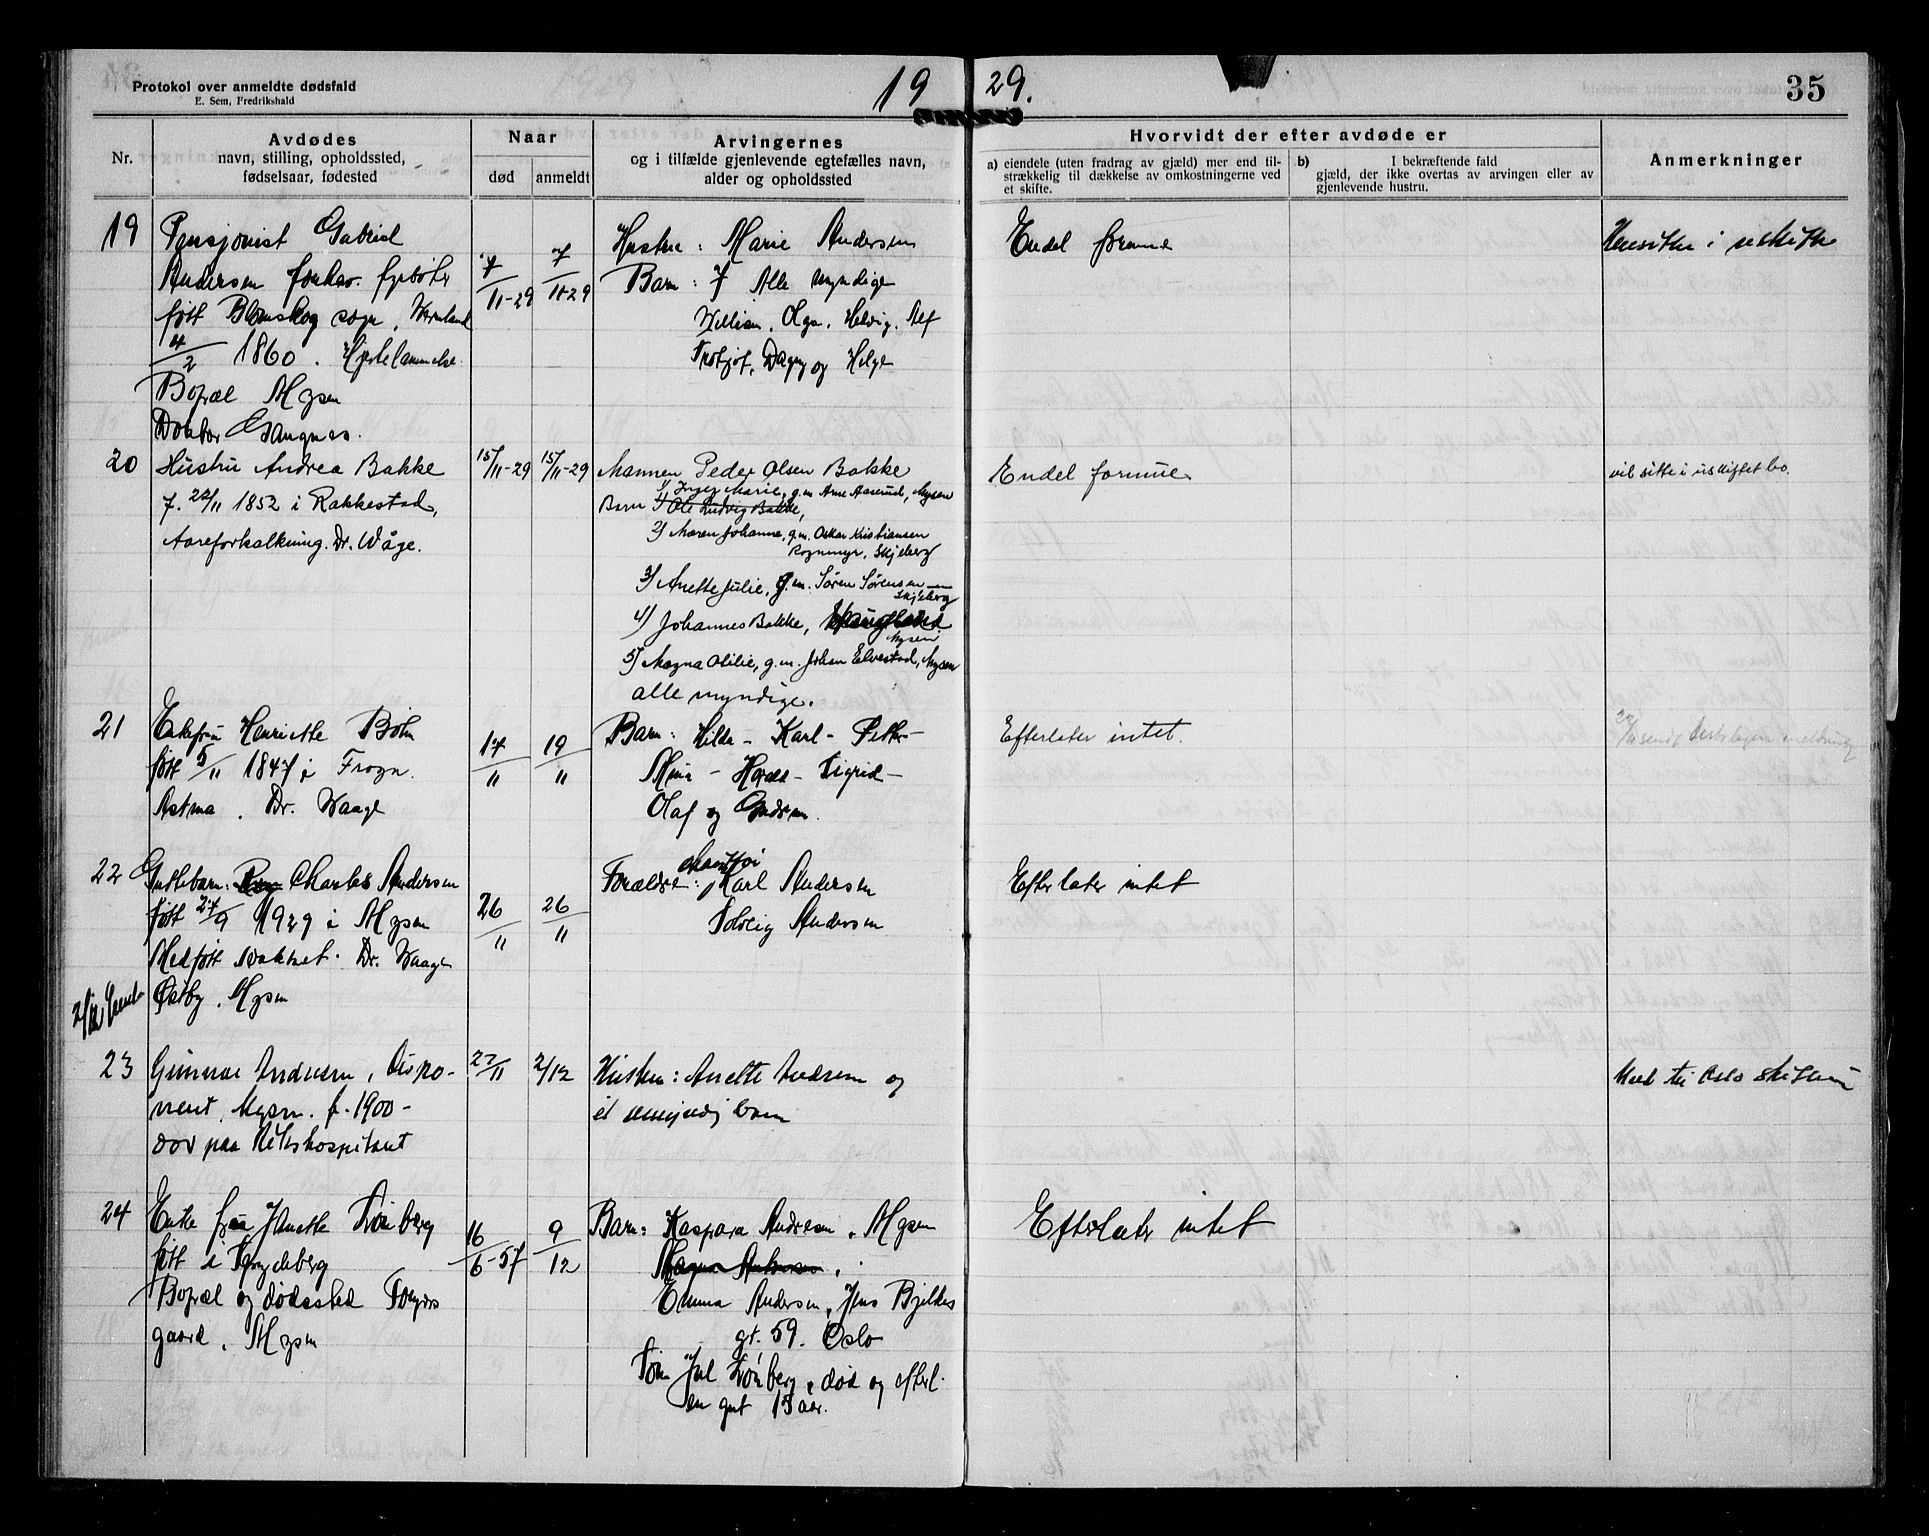 Protokol over anmeldte dødsfald
E. Sem, Fredrikshald
19 29.
35
Nr.
Avdødes
navn, stilling, opholdssted,
fødselsaar, fødested
Naar
død
anmeldt
Arvingernes
og i tilfælde gjenlevende egtefælles navn,
alder og opholdssted
Hvorvidt der efter avdøde er
a) eiendele (uten fradrag av gjæld) mer end til-
strækkelig til dækkelse av omkostningerne ved
et skifte.
b) I bekræftende fald
gjæld, der ikke overtas av arvingen eller av
gjenlevende hustru.
Anmerkninger
19
Pensjonist Gabriel
Andersen forhv. fyrbøter
født Blomskog sogn, Värmland
4/2 1860. Hjertelammelse.
Bopæl Mysen
Doktor
7/11-29
7/11-29
Hustru: Marie Andersen
Barn: 7 Alle myndige
William, Olga, Helvig, Alf
Dagny og Helge
Endel formue
Hensitter i uskifte
20
Hustru Andrea Bakke
f. 22/11 1852 i Rakkestad,
Aareforkalkning. Dr. Wåge.
15/11-29
15/11-29
Mannen Peder Olsen Bakke
1) Inger Marie, g.m. Arne Aaserud, Mysen
Barn 1) Ole Ludvig Bakke,
2) Maren Johanne, g.m. Oskar Kristiansen
Rognmyr, Skjeberg
3) Anette Julie, g.m. Søren Sørensen
Skjeberg
4) Johannes Bakke,
Mysen
5) Magna Otilie, g.m. Johan Elvestad, Mysen
alle myndige.
Endel formue
vil sitte i uskiftet bo.
21
Enkefru Henriette Bøhn
født 5/11 1847 i Frogn.
Astma. Dr. Waage
17/11
19/11
Barn: Hilda - Karl - Petter -
Mina - - Sigrid -
Olaf og
Efterlater intet.
22
Guttebarn: Charles Andersen
født 27/9 1929 i Mysen
Medfødt svakhet. Dr. Waage
Østby, Mysen
26/11
26/11
Forældre: Karl Andersen
Solveig Andersen
Efterlater intet
2/12
23
Gunnar Andresen, dispo-
nent, Mysen. f. 1900 -
død paa Rikshospitalet
27/11
2/12
Hustru: Anette Andresen og
et umyndig barn
Medd. til Oslo skifterett
24
Enke fru Anette Trønberg
født i Spydeberg
Bopæl og dødssted
gaard, Mysen
16/6-57
9/12
Barn: Kaspara Andresen, Mysen
Emma Andersen, Jens Bjelkes
gt. 59. Oslo
Søn Jul Trønberg, død og efterl.
en gut 13 aar.
Efterlater intet